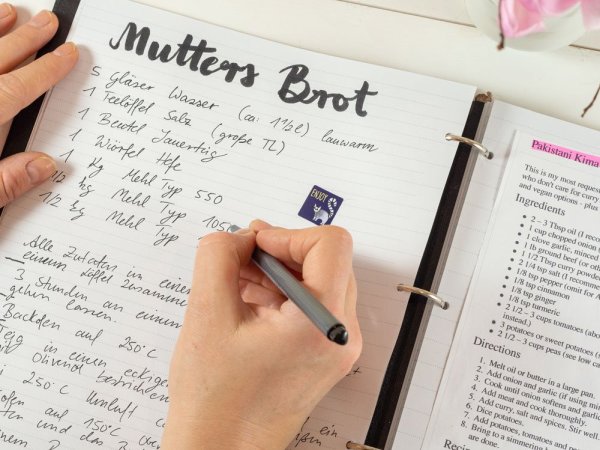 Mutters Brot
5 Gläser Wasser (ca. 1 1/2 l) lauwarm
1 Teelöffel Salz (große TL)
1 Beutel Sauerteig
1 Würfel Hefe
1 kg Mehl Typ 550
1/2 kg Mehl Typ 105
1/2 kg Mehl Typ
ENJOY
Alle Zutaten in eine
einem Löffel zusamme
3 Stunden an einem
gehen lassen.
Backofen auf 250°C
Teig in einen eckige
Olivenöl bestriche
250°C Umluft
ofen auf 150°C
und das B
ein
Pakistani Kima
This is my most reques
who don't care for curry
and vegan options - plus
Ingredients
2 – 3 Tbsp oil (I reco
1 cup chopped onion (
1 clove garlic, minced
1 lb ground beef (or othe
1 1/2 Tbsp curry powder
2 1/4 tsp salt (I recomme
1/8 tsp pepper (omit for A
1/8 tsp cinnamon
1/8 tsp ginger
1/8 tsp turmeric
2 1/2 – 3 cups tomatoes (abo
instead.)
3 potatoes or sweet potatoes (
2 1/2 – 3 cups peas (see low ca
Directions
1. Melt oil or butter in a large pan.
2. Add onion and garlic (if using min
3. Cook until onion softens and garlic
4. Add meat and cook thoroughly.
5. Add curry, salt and spices. Stir well.
6. Dice potatoes.
7. Add potatoes, tomatoes and pe
8. Bring to a simmering
are done.
Recip